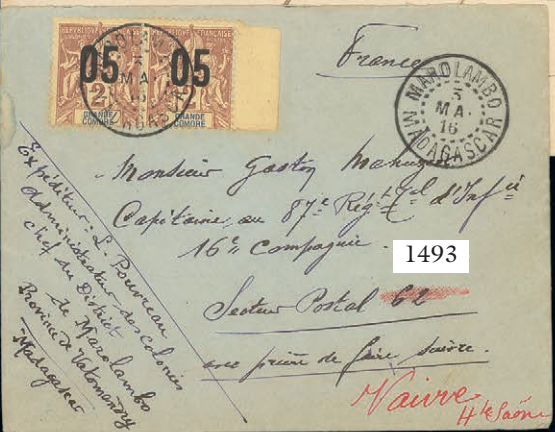 RÉPUBLIQUE FRANÇAISE
05 05
2c
GRANDE COMORE GRANDE COMORE
MAROLAMBO
3
MA.
16
MADAGASCAR
France
MAROLAMBO
3
MA.
16
MADAGASCAR
Monsieur Gaston
Capitaine au 87e Régt d'Infie
16e Compagnie.
1493
Secteur Postal 62
avec prière de faire suivre.
Vaivre
Hte Saône
Expéditeur: L. Pouvreau
Administrateur des colonies
chef du District
de Marolambo
Province de Vatomandry
Madagascar